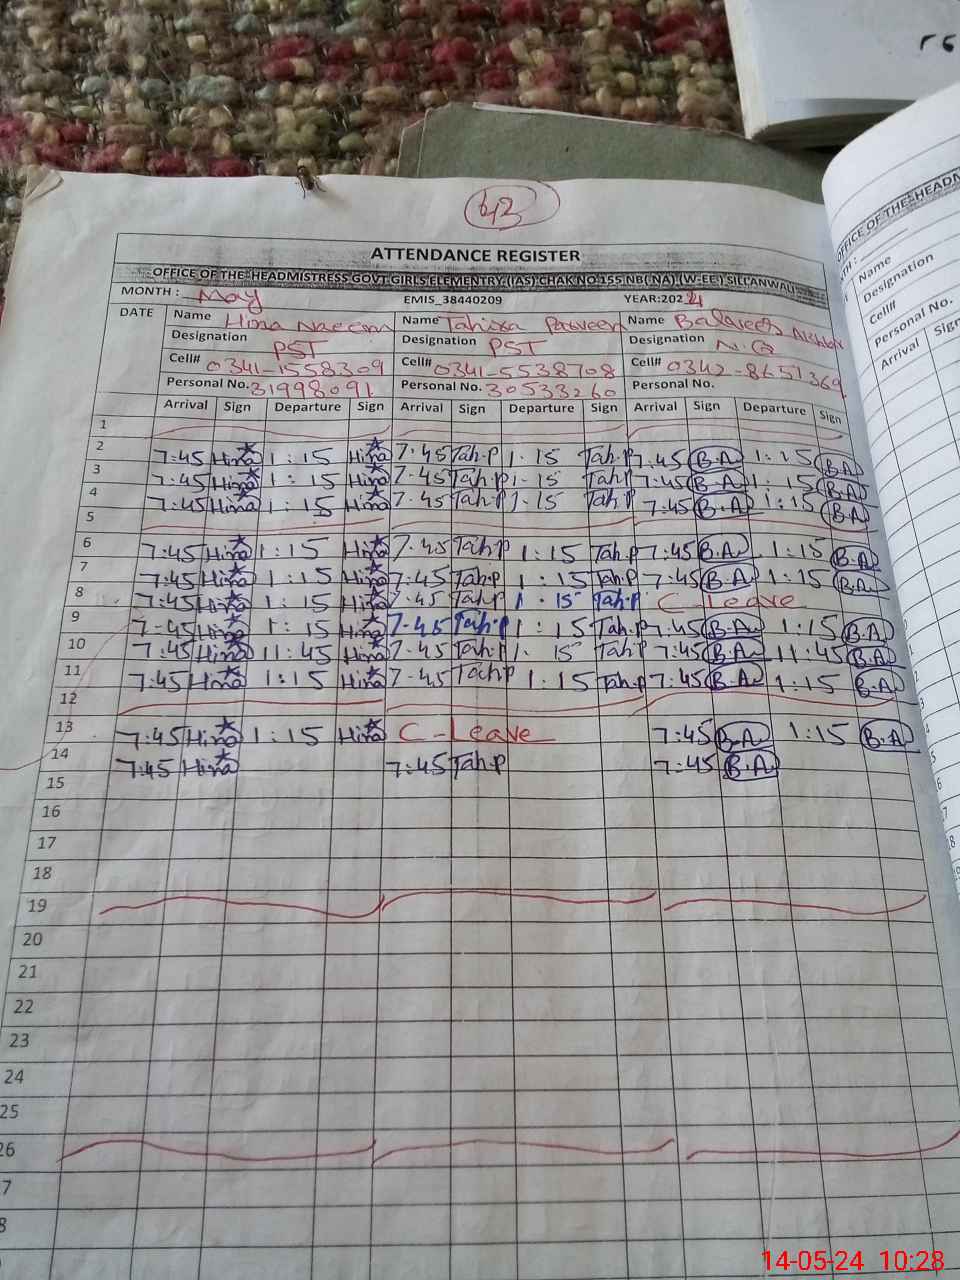 43
ATTENDANCE REGISTER
OFFICE OF THE HEADMISTRESS GOVT GIRLS ELEMENTRY (IAS) CHAK NO 155 NB( NA) (W-EE ) SILLANWALI
MONTH : May EMIS_38440209 YEAR:2024
DATE Name Hina Naeem Name Tahira Parveen Name
Designation PST Designation PST Designation N.Q
Cell# 0341-1558309 Cell# 0341-5538708 Cell# 0342-8651369
Personal No. 31998091 Personal No. 30533260 Personal No.
Arrival Sign Departure Sign Arrival Sign Departure Sign Arrival Sign Departure Sign
1
2 7:45 Hina 1:15 Hina 7.45 Tah.P 1.15 Tah.P 7:45 B.A 1:15 B.A
3 7:45 Hina 1:15 Hina 7.45 Tah.P 1.15 Tah.P 7:45 B.A 1:15 B.A
4 7:45 Hina 1:15 Hina 7.45 Tah.P 1.15 Tah.P 7:45 B.A 1:15 B.A
5
6 7:45 Hina 1:15 Hina 7.45 Tah.P 1:15 Tah.P 7:45 B.A 1:15 B.A
7 7:45 Hina 1:15 Hina 7.45 Tah.P 1:15 Tah.P 7:45 B.A 1:15 B.A
8 7:45 Hina 1:15 Hina 7.45 Tah.P 1.15 Tah.P C-Leave
9 7-45 Hina 1:15 Hina 7.45 Tah.P 1:15 Tah.P 7:45 B.A 1:15 B.A
10 7:45 Hina 11:45 Hina 7.45 Tah.P 1.15 Tah.P 7:45 B.A 11:45 B.A
11 7:45 Hina 1:15 Hina 7.45 Tah.P 1:15 Tah.P 7:45 B.A 1:15 B.A
12
13 7:45 Hina 1:15 Hina C-Leave 7:45 B.A 1:15 B.A
14 7:45 Hina 7:45 Tah.P 7:45 B.A
15
16
17
18
19
20
21
22
23
24
25
26
7
8
OFFICE OF THE HEADM
TH :
Name
Designation
Cell#
Personal No.
Arrival Sign
14-05-24 10:28